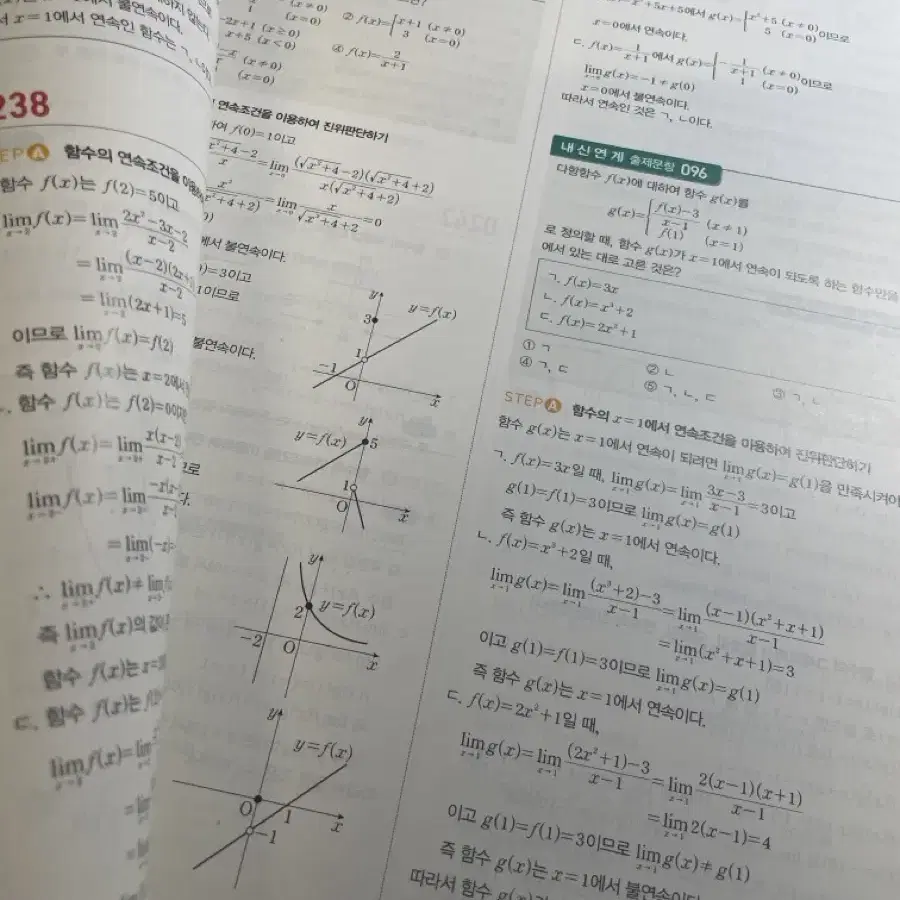 서 x=1에서 연속인 함수는 ㄱ,
238
함수의 연속조건을 이용하
함수 f(x)는 f(2)=5이고
lim f(x)=lim (2x²-3x-2)/(x-2)
=lim (x-2)(2x+1)/(x-2)
=lim(2x+1)=5
이므로 lim f(x)=f(2)
즉 함수 f(x)는 x=2에서
함수 f(x)는 f(2)=0이
lim f(x)=lim
lim f(x)=lim
=lim(-x)
∴ lim f(x)≠lim
즉 lim f(x)의 값이
함수 f(x)는 x=
ㄷ. 함수 f(x)는 f(
lim f(x)=lim
② f(x)={x+1 (x≠0)
3 (x=0)
-2x+1 (x≥0)
x+5 (x<0)
④ f(x)=2/(x+1)
(x≠0)
(x=0)
연속조건을 이용하여 진위판단하기
하여 f(0)=1이고
=lim (√x²+4-2)(√x²+4+2)/x(√x²+4+2)
=lim x/(√x²+4+2)=0
에서 불연속이다.
=3이고
1이므로
불연속이다.
y
3
y=f(x)
1
-1
O
x
y
y=f(x)
5
1
O
x
y
2
y=f(x)
-2
O
x
y
y=f(x)
O
1
x
-1
x²+5x+5에서 g(x)={x²+5 (x≠0)
5 (x=0)이므로
x=0에서 연속이다.
ㄷ. f(x)=1/(x+1)에서 g(x)={-1/(x+1) (x≠0)
1 (x=0)이므로
lim g(x)=-1≠g(0)
x=0에서 불연속이다.
따라서 연속인 것은 ㄱ, ㄴ이다.
내신연계 출제문항 096
다항함수 f(x)에 대하여 함수 g(x)를
g(x)={(f(x)-3)/(x-1) (x≠1)
f(1) (x=1)
로 정의할 때, 함수 g(x)가 x=1에서 연속이 되도록 하는 함수만을
에서 있는 대로 고른 것은?
ㄱ. f(x)=3x
ㄴ. f(x)=x³+2
ㄷ. f(x)=2x²+1
① ㄱ
② ㄴ
③ ㄱ, ㄴ
④ ㄱ, ㄷ
⑤ ㄱ, ㄴ, ㄷ
STEP A 함수의 x=1에서 연속조건을 이용하여 진위판단하기
함수 g(x)는 x=1에서 연속이 되려면 lim x→1 g(x)=g(1)을 만족시켜야
ㄱ. f(x)=3x일 때, lim x→1 g(x)=lim x→1 (3x-3)/(x-1)=3이고
g(1)=f(1)=3이므로 lim x→1 g(x)=g(1)
즉 함수 g(x)는 x=1에서 연속이다.
ㄴ. f(x)=x³+2일 때,
lim x→1 g(x)=lim x→1 ((x³+2)-3)/(x-1)=lim x→1 (x-1)(x²+x+1)/(x-1)
=lim x→1 (x²+x+1)=3
이고 g(1)=f(1)=3이므로 lim x→1 g(x)=g(1)
즉 함수 g(x)는 x=1에서 연속이다.
ㄷ. f(x)=2x²+1일 때,
lim x→1 g(x)=lim x→1 ((2x²+1)-3)/(x-1)=lim x→1 2(x-1)(x+1)/(x-1)
=lim x→1 2(x-1)=4
이고 g(1)=f(1)=3이므로 lim x→1 g(x)≠g(1)
즉 함수 g(x)는 x=1에서 불연속이다
따라서 함수